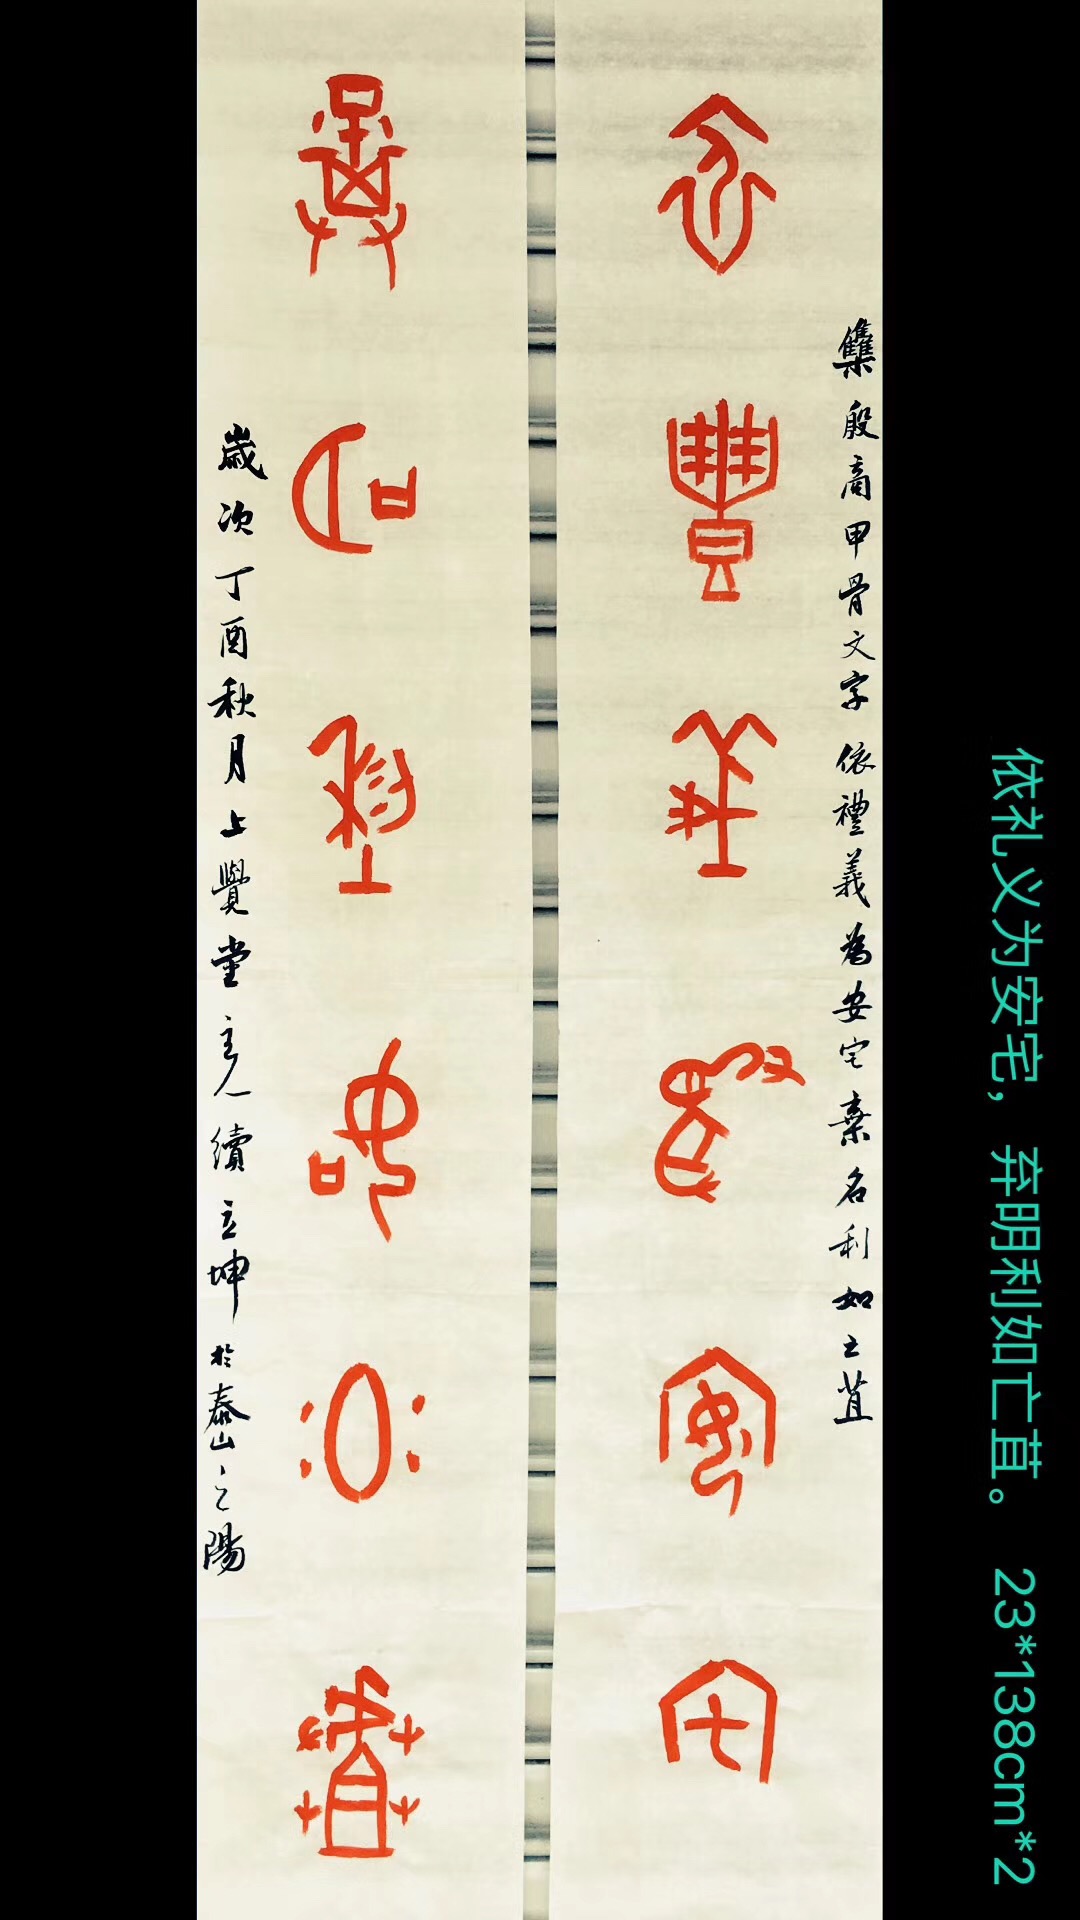 依礼义为安宅，弃明利如亡苴。 23*138cm*2
雧殷商甲骨文字依禮義為安宅棄名利如土苴
依禮義為安宅
棄名利如土苴
歲次丁酉秋月上覺堂主人續立坤於泰山之陽